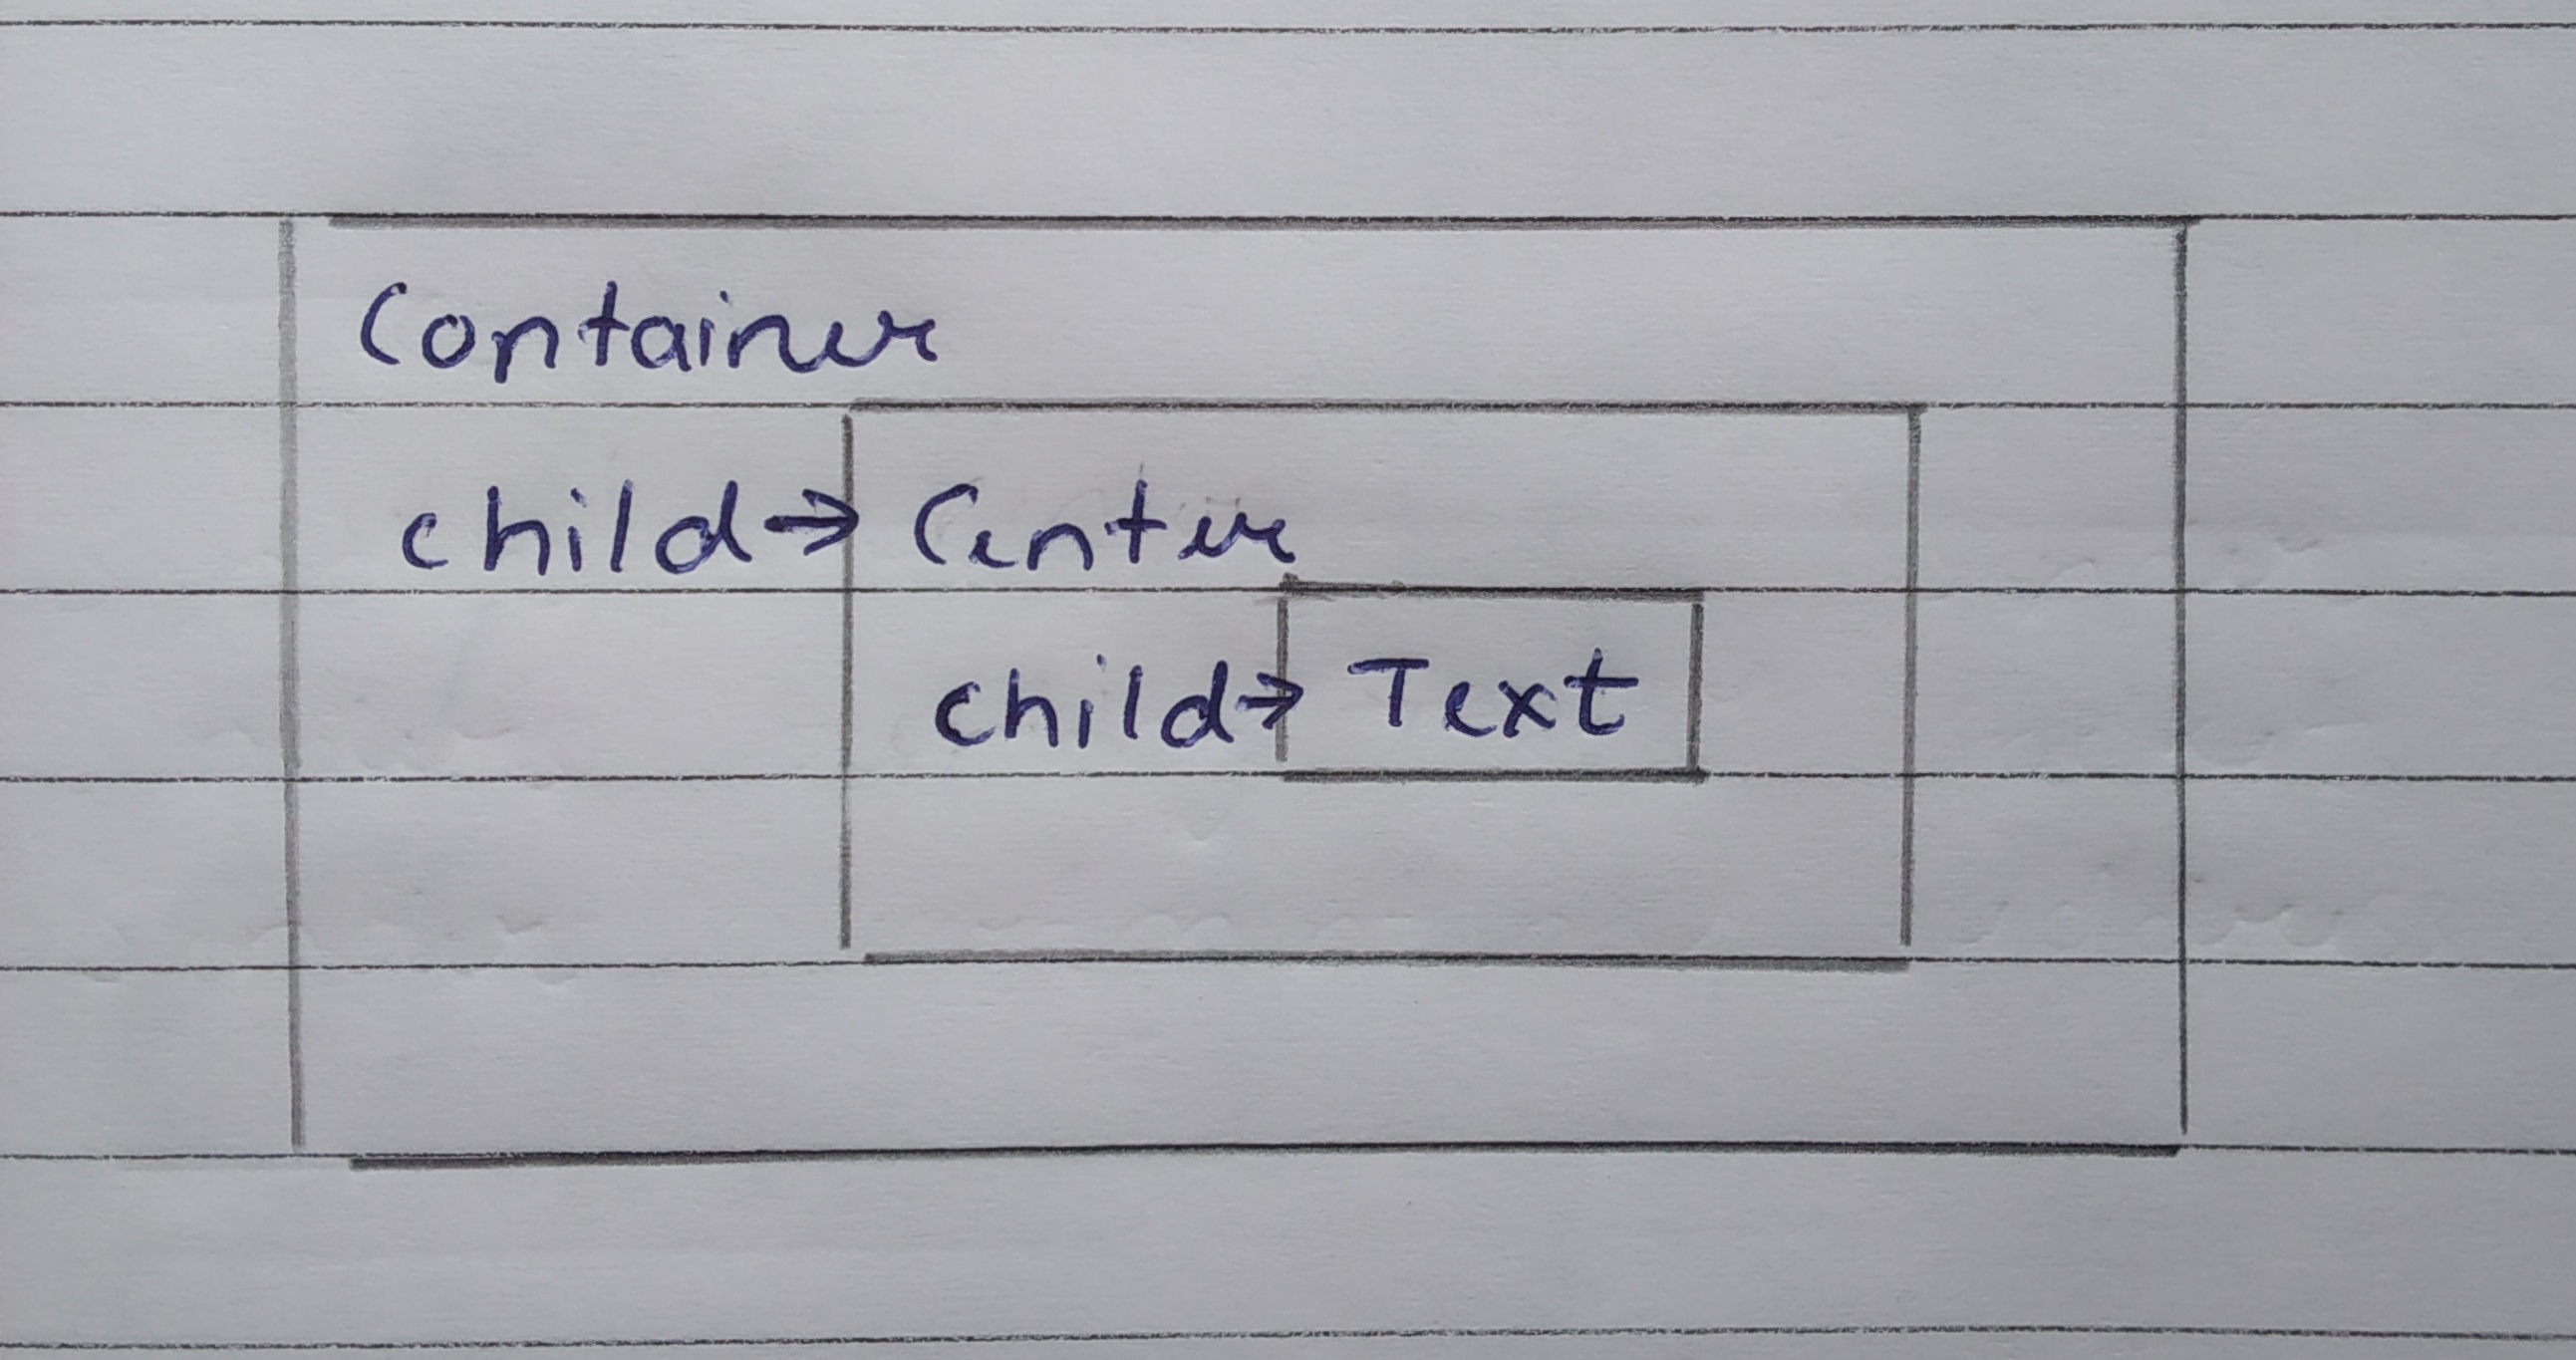 Container
child → Center
child → Text